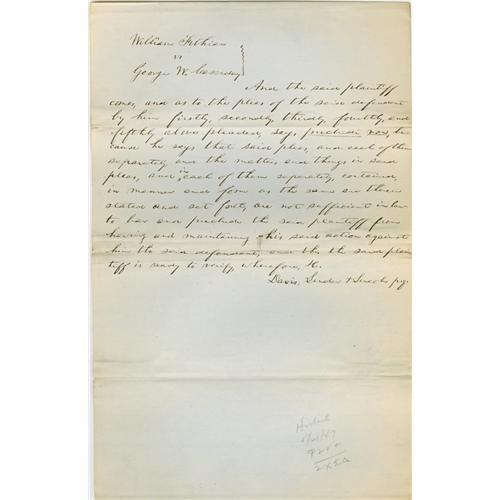 William Fithian
vs
George W. Cassiday
And the said plaintiff
comes, and as to the pleas of the said defendant
by him firstly, secondly, thirdly, fourthly, and
fifthly above pleaded, says precludi non, be
cause he says that said pleas, and each of them
separately and the matters and things in said
pleas, and in each of them separately, contained,
in manner and form as the same are therein
stated and set forth, are not sufficient in law
to bar and preclude the said plaintiff from
having and maintaining his said action against
him the said defendant, and this the said plain
tiff is ready to verify, wherefore, &c.
Davis, Linder & Lincoln p.q.